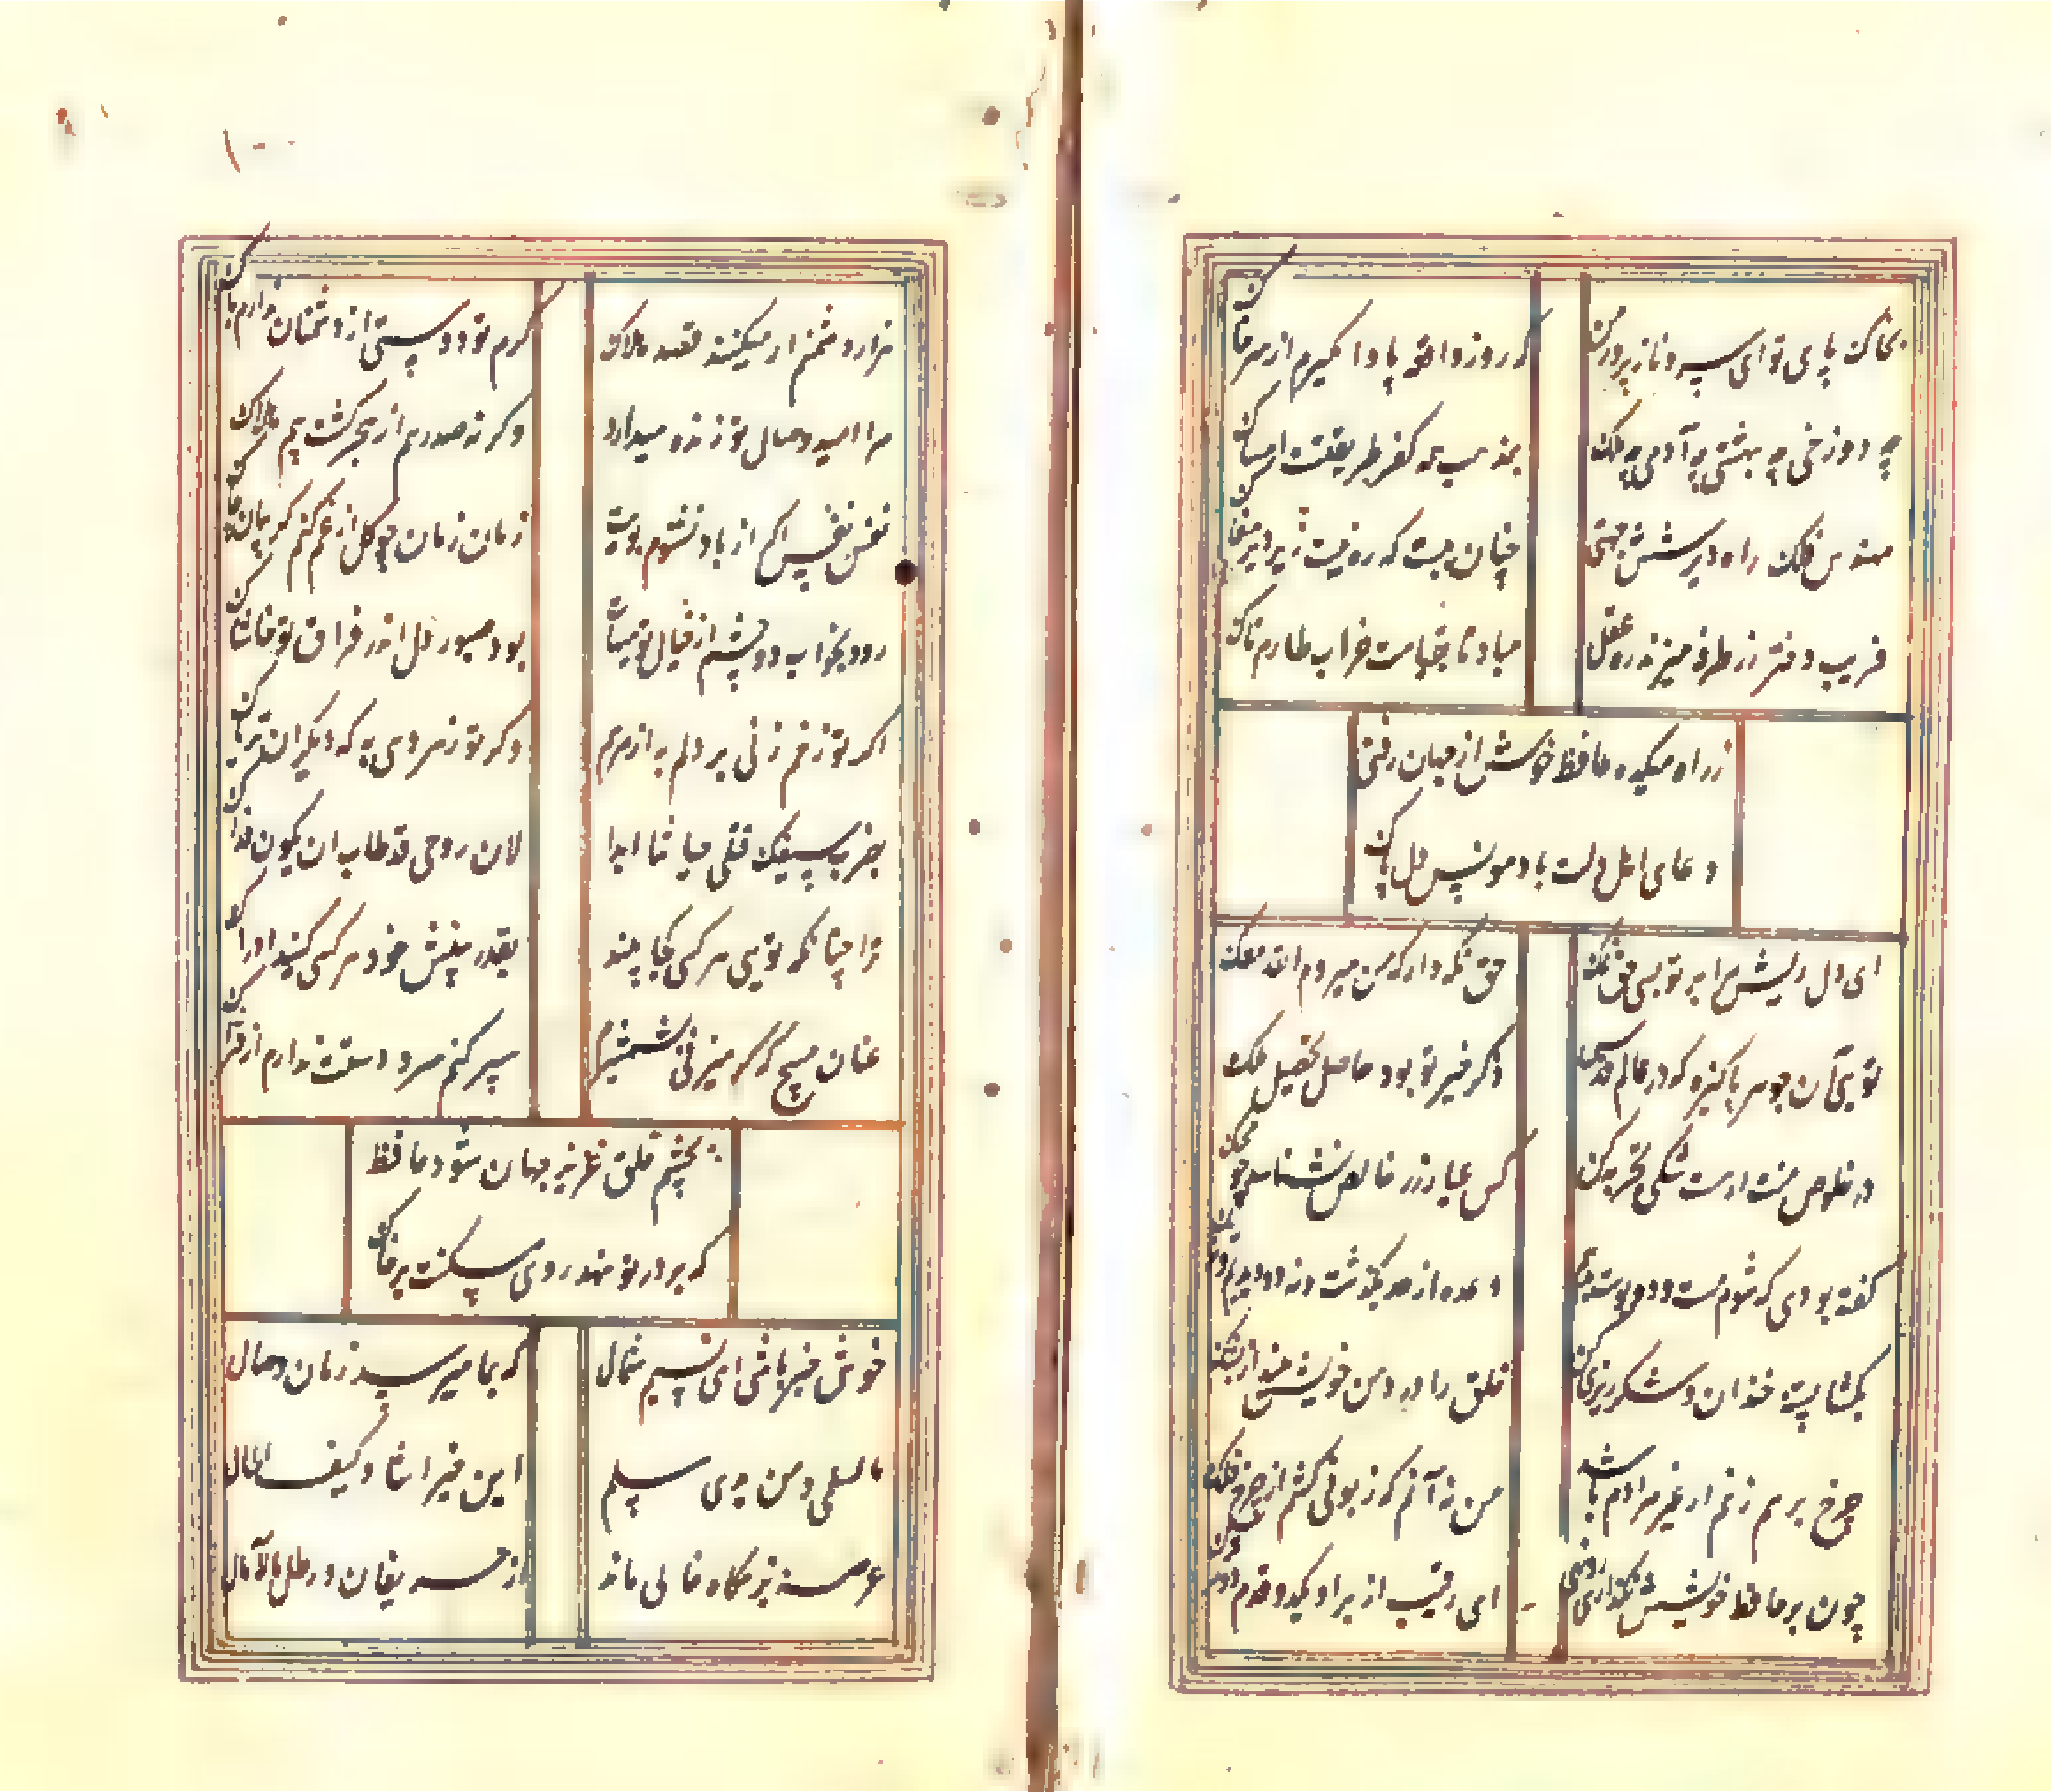 بخاک پای تو ای سرو ناز پرور من
که روز واقعه پا وا مگیرم از سر خاک
چه دوزخی چه بهشتی چه آدمی چه ملک
بمذهب همه کفر طریقت است امساک
مهندس فلک راه دیر شش جهتی
چنان ببست که ره نیست زیر دیر مغاک
فریب دختر رز طرفه میزند ره عقل
مباد تا بقیامت خراب طارم تاک
ز راه میکده حافظ خوش از جهان رفتی
دعای اهل دلت باد مونس دل پاک
ای دل ریش مرا بر تو بسی حق نمک
حق نگه دار که من میروم الله معک
تویی آن جوهر پاکیزه که در عالم قدس
ذکر خیر تو بود حاصل تحصیل ملک
در خلوص منت ار هست شکی تجربه کن
کس عیار زر خالص نشناسد چو محک
گفته بودی که شوم مست و دو بوست بدهم
وعده از حد بگذشت و نه دو دیدیم و نه یک
بگشا پسته خندان و شکر ریزی کن
خلق را در دهن خویش مینداز بشک
چرخ بر هم زنم ار غیر مرادم باشد
من نه آنم که زبونی کشم از چرخ فلک
چون بر حافظ خویشش نگذاری روزی
ای رقیب از بر او یکدو قدم دورترک
هزار دشمنم ار میکنند قصد هلاک
گرم تو دوستی از دشمنان ندارم باک
مرا امید وصال تو زنده میدارد
وگرنه صد رهم از هجر کشت بیم هلاک
نفس نفس اگر از باد نشنوم بویت
زمان زمان چو گل از غم کنم گریبان چاک
رود بخواب دو چشم از خیال تو هیهات
بود صبور دل اندر فراق تو حاشاک
اگر تو زخم زنی بر دلم به از مرهم
وگر تو زهر دهی به که دیگران تریاک
بضرب سیفک قتلی حیاتنا ابدا
لان روحی قد طاب ان یکون فداک
ترا چنانکه تویی هر کسی کجا بیند
بقدر بینش خود هر کسی کند ادراک
عنان مپیچ که گر میزنی بشمشیرم
سپر کنم سر و دستت ندارم از فتراک
بچشم خلق عزیز جهان شود حافظ
که بر در تو نهد روی مسکنت بر خاک
خوش خبر باشی ای نسیم شمال
که بما میرسد زمان وصال
ما لسلمی و من بذی سلم
این جیراننا و کیف الحال
عرصه بزمگاه خالی ماند
از حریفان و رطل مالامال